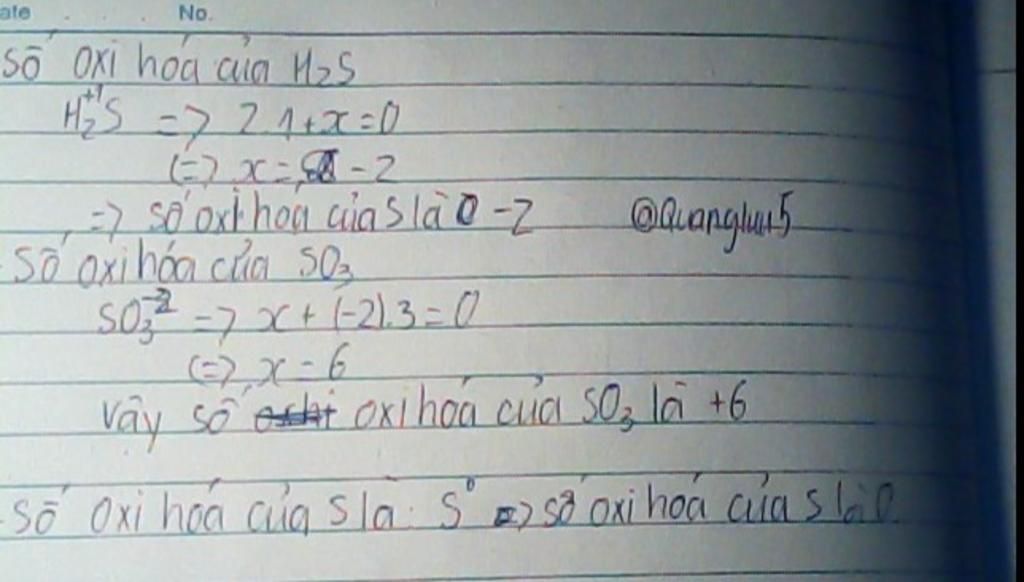 ate No.
Số oxi hóa của H₂S
H₂⁺¹S => 2.1+x=0
(=) x= -2
=> số oxi hoa của S là -2 @Quangluu5
Số oxi hóa của SO₃
SO₃⁻² => x+(-2).3=0
(=) x=6
Vậy số oxi hóa của SO₃ là +6
Số oxi hoá của S là: S⁰ => số oxi hoá của S là 0